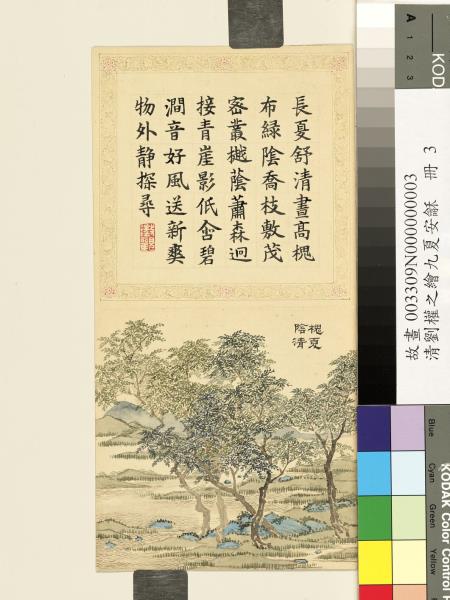 長夏舒清晝高槐
布綠陰喬枝敷茂
密叢樾蔭蕭森迥
接青崖影低含碧
澗音好風送新爽
物外靜探尋
槐夏
陰清
故畫 003309N000000003
清劉權之繪九夏安龢 冊 3
A 1 2 3
KOD
Blue
Cyan
Green
Yellow
KODAK Color Control